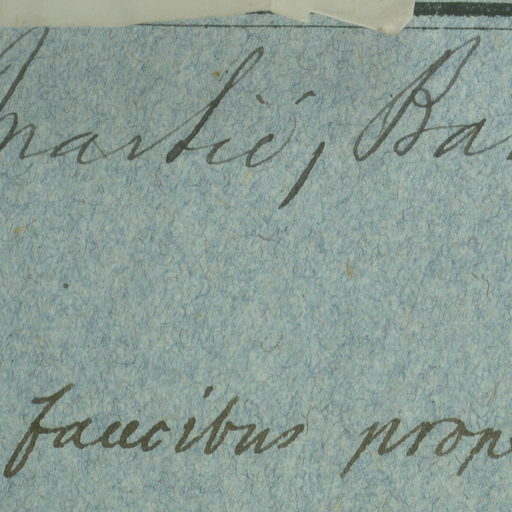 Martii, Ba
faucibus prop